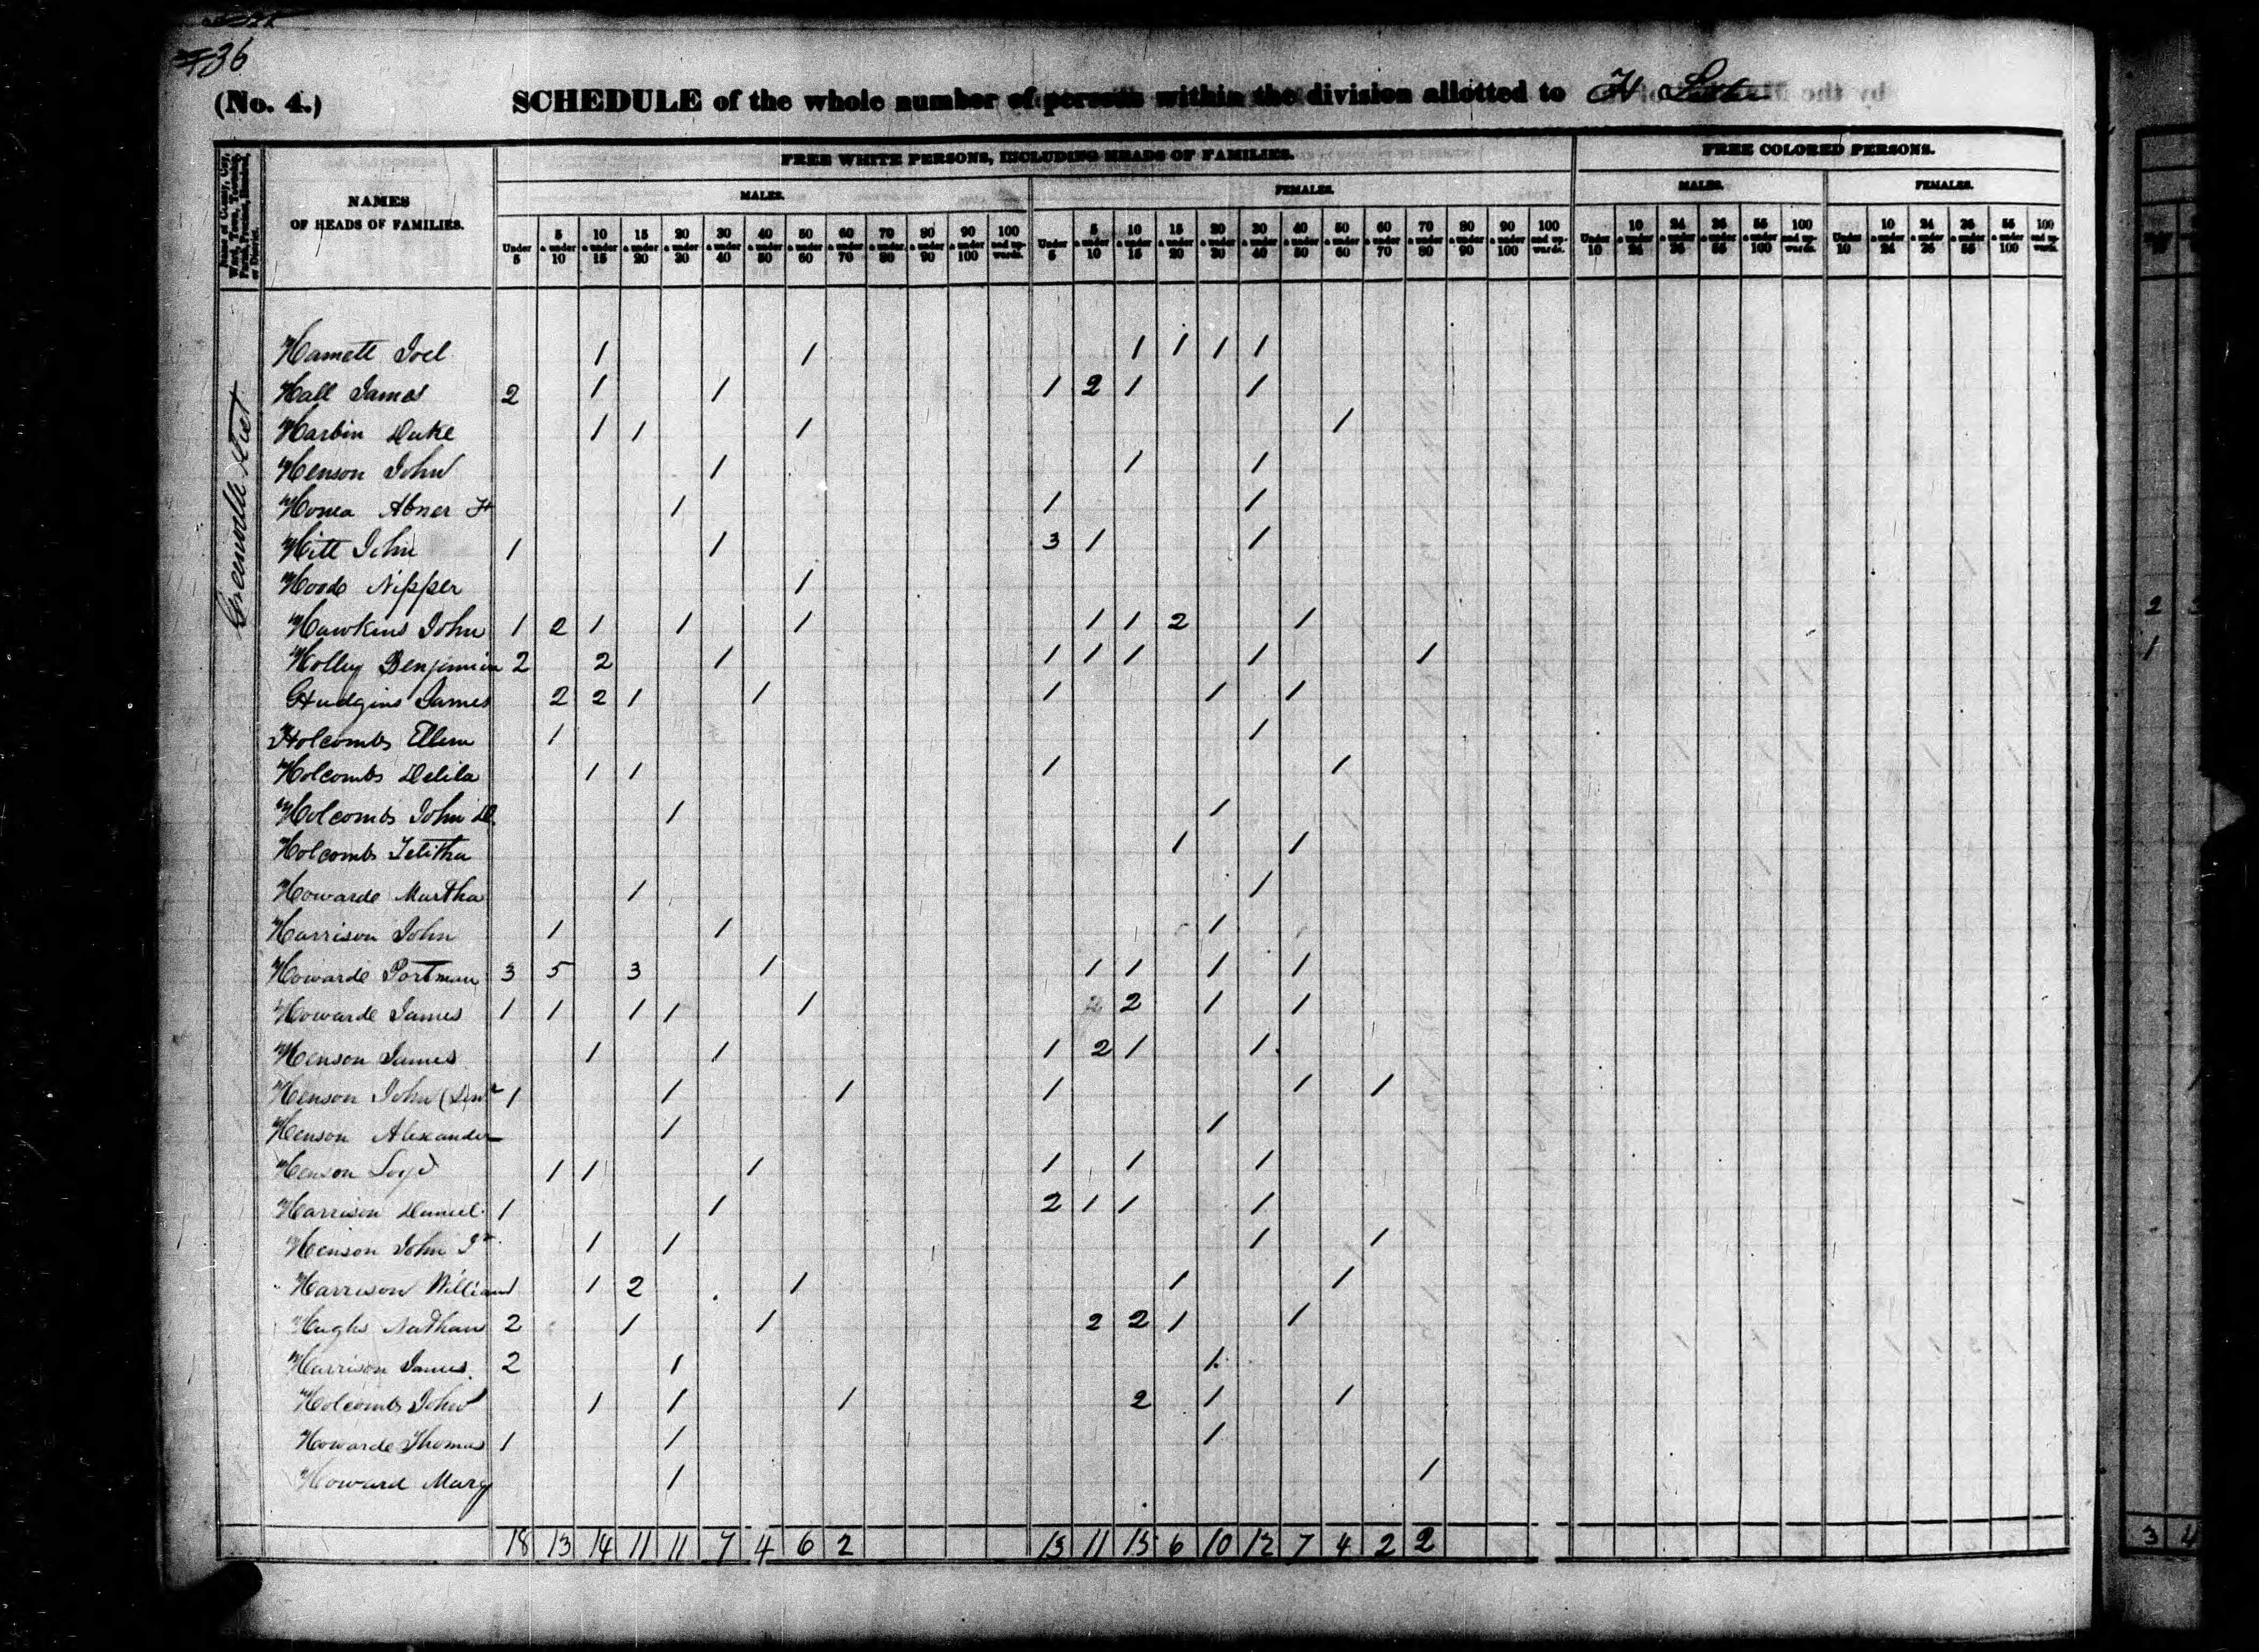 736
(No. 4.) SCHEDULE of the whole number of persons within the division allotted to
FREE WHITE PERSONS, INCLUDING HEADS OF FAMILIES. FREE COLORED PERSONS.
MALES. FEMALES. MALES. FEMALES.
Name of County, City, Ward, Town, Township, Parish, Precinct, Hundred, or District.
NAMES OF HEADS OF FAMILIES.
Under 5 5 & under 10 10 & under 15 15 & under 20 20 & under 30 30 & under 40 40 & under 50 50 & under 60 60 & under 70 70 & under 80 80 & under 90 90 & under 100 100 and upwards. Under 5 5 & under 10 10 & under 15 15 & under 20 20 & under 30 30 & under 40 40 & under 50 50 & under 60 60 & under 70 70 & under 80 80 & under 90 90 & under 100 100 and upwards. Under 10 10 & under 24 24 & under 36 36 & under 55 55 & under 100 100 and upwards. Under 10 10 & under 24 24 & under 36 36 & under 55 55 & under 100 100 and upwards.
Greenville Dist
Hamett Joel 1 1 1 1 1 1
Hall James 2 1 1 1 2 1 1
Harbin Duke 1 1 1 1
Henson John 1 1 1
Abner H 1 1 1
Hitt John 1 1 3 1 1
Hood Nipper 1
Hawkins John 1 2 1 1 1 1 1 2 1
Holley Benjamin 2 2 1 1 1 1 1 1
Hudgins James 2 2 1 1 1 1 1
Holcombs 1 1
Holcombs Delila 1 1 1 1
Holcombs John D. 1 1
Holcombs Telitha 1 1
Howarde Martha 1 1
Harrison John 1 1 1
Howarde Portman 3 5 3 1 1 1 1 1
Howarde James 1 1 1 1 1 2 2 1 1
Henson James 1 1 1 2 1 1
Henson John (Senr 1 1 1 1 1 1
Henson Alexander 1 1
Henson Loyd 1 1 1 1 1 1
Harrison Daniel 1 1 2 1 1 1
Henson John Jr 1 1 1 1
Harrison William 1 1 2 1 1 1
Hughs Nathan 2 1 1 2 2 1 1
Harrison James 2 1 1
Holcombs John 1 1 1 2 1 1
Howarde Thomas 1 1 1
Howard Mary 1 1
18 13 14 11 11 7 4 6 2 13 11 15 6 10 12 7 4 2 2